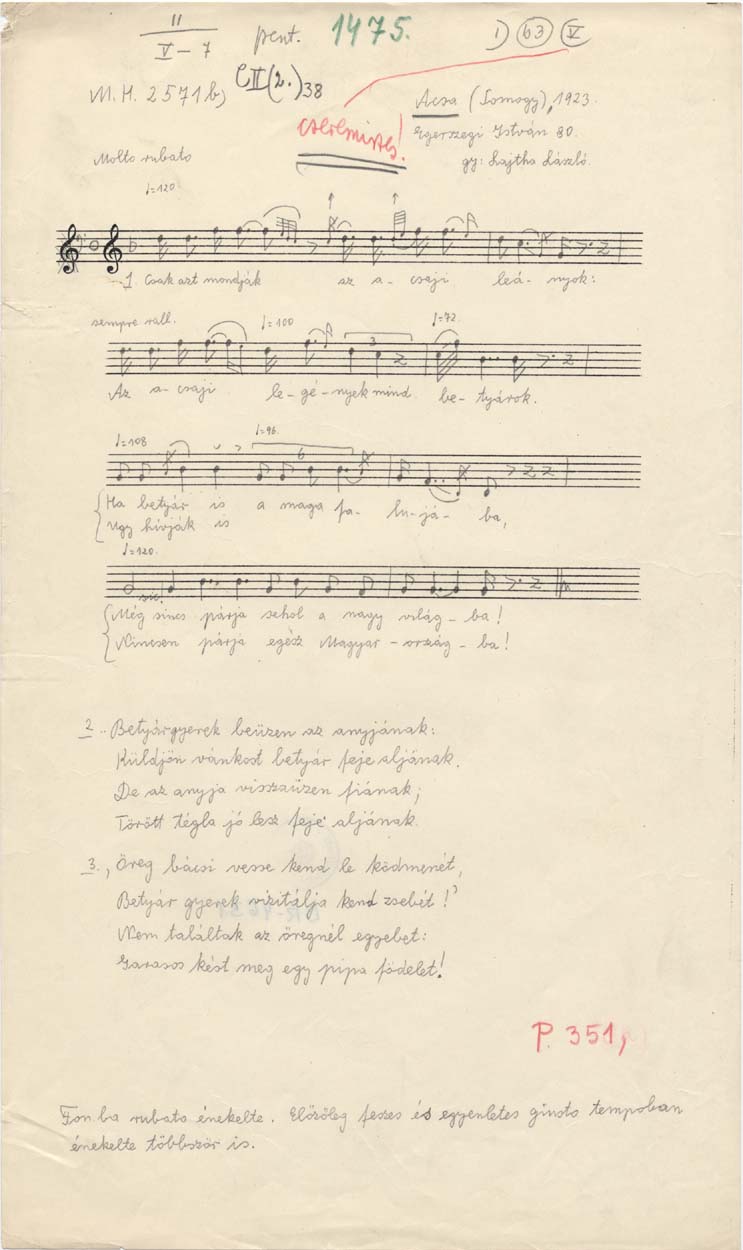 II
V - 7
pent. 1475.
1) 63 V
M.H. 2571b) CII(2.)38
Acsa (Somogy), 1923.
cseremisses!
Egerszegi István 80.
gy: Lajtha László.
Molto rubato
♩=120
1. Csak azt mondják az a- csaji leá- nyok:
sempre rall. ♩=100 ♩=72.
3
Az a- csaji le- gé- nyek mind be- tyárok.
♩=108 ♩=96.
6
Ha betyár is a maga fa- lu- já- ba,
Ugy hívják is
♩=120.
sic!
Még sincs párja sehol a nagy világ - ba!
Nincsen párja egész Magyar - ország - ba!
2. Betyárgyerek beüzen az anyjának:
Küldjön vánkost betyár feje aljának.
De az anyja visszaüzen fiának;
Törött tégla jó lesz feje aljának.
3., Öreg bácsi vesse kend le ködmenét,
Betyár gyerek vizitálja kend zsebét!
Nem találtak az öregnél egyebet:
Garasos kést meg egy pipa födelet!
P. 351,
Fon.ba rubato énekelte. Előzőleg feszes és egyenletes giusto tempoban
énekelte többször is.